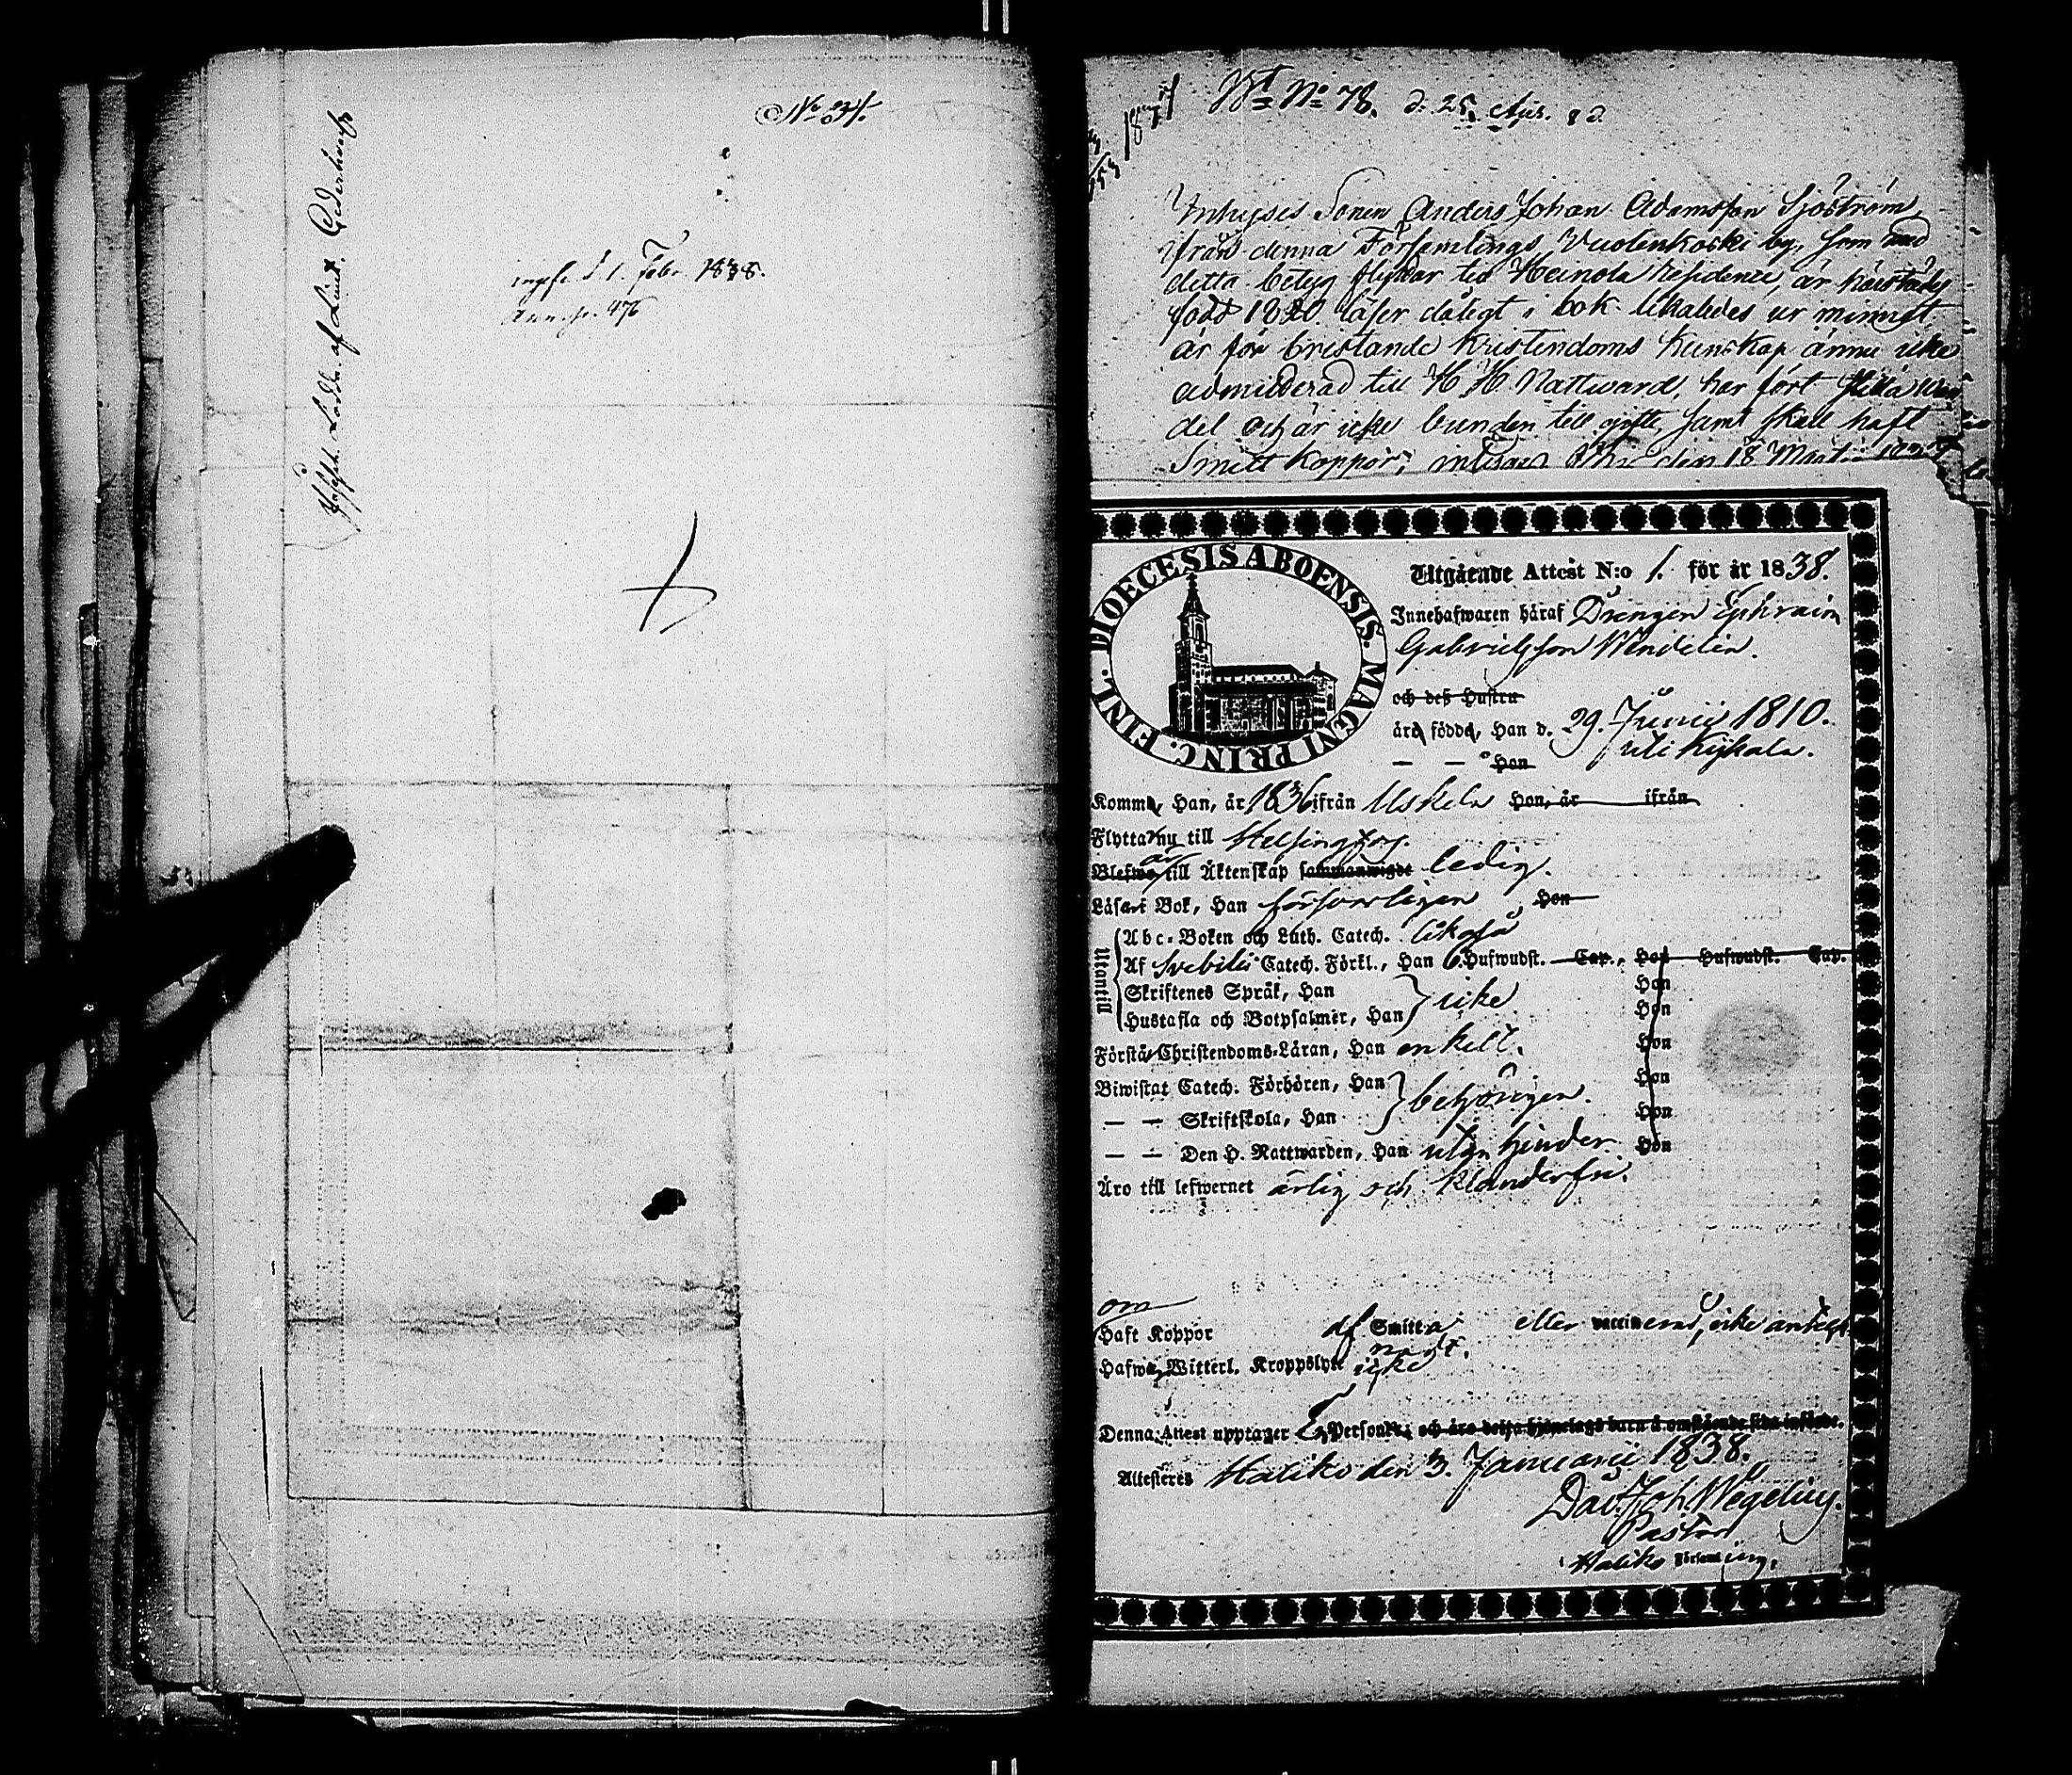 No 31.
ingifr. d. 1. Febr. 1838.
476
Nt No 78. d. 25
Inhyses Sonen Anders Johan Adamsson Sjöström
ifrån denna Församlings Vuolenkoski by, som med
detta betyg flyttar till Heinola Residence, är
född 1820 läser dåligt i bok likaledes ur minnet
är för bristande Kristendoms Kunskap ännu icke
admitterad till H. H. Nattward, har fört
del och är icke bunden till gifte, samt skall haft
Smitt koppor; den 18 Martii
DIOECESIS ABOENSIS. MAGNI PRINC. FINL.
Utgående Attest N:o 1. för år 1838.
Innehafwaren häraf Drengen Ephraim
Gabrielsson Wendelin.
och deß Hustru
äro födde, Han d. 29. Junii 1810.
— — Hon uti Kijkala.
Komm, Han, år 1836 ifrån Uskela Hon, år ifrån
Flytta nu till Helsingfors.
Blefwo är till Äktenskap sammanwigde ledig.
Läsa i Bok, Han försvarligen Hon
Utantill
Abc-Boken och Luth. Catech. likaså
Af Svebilii Catech. Förkl., Han 6. Hufwudst. Cap., Hon Hufwudst. Cap.
Skriftenes Språk, Han Hon
Hustafla och Botpsalmer, Han icke Hon
Förstå Christendoms-Läran, Han enkelt. Hon
Biwistat Catech. Förhören, Han Hon
— — Skriftskola, Han behörigen. Hon
— — Den H. Nattwarden, Han utan hinder Hon
Äro till lefwernet ärlig och klanderfri.
om
Haft Koppor af Smitta eller vaccinerad, icke anteck
nadt.
Hafwa Witterl. Kroppslyte icke
Denna Attest upptager En Person och äro deſſa hjonelags barn å omstående sida införde.
Attesteres Haliko den 3. Januarii 1838.
Dav. Joh. Wegelius.
Pastor
Haliko Församling.